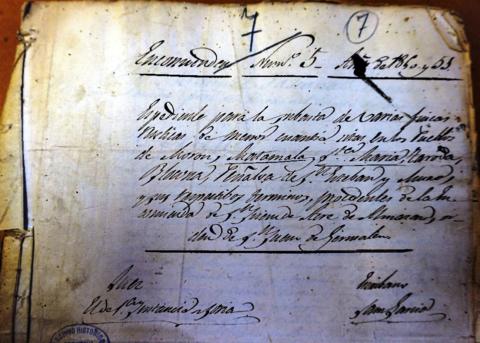 7 7
Encomiendas Num.º 5 Año de 184 y 53
Expediente para la subasta de varias fincas
rusticas de menor cuantia sitas en los Pueblos
de Moron, Matamala, S.ta Maria,
Peñalba de S.n Esteban y
y sus respectivos terminos, procedentes de la En
comienda de S.n Juan de Acre de Almazan, or
den de S.n Juan de Jerusalen
Juez Escribano
El de 1.ª Instancia de Soria Garcia